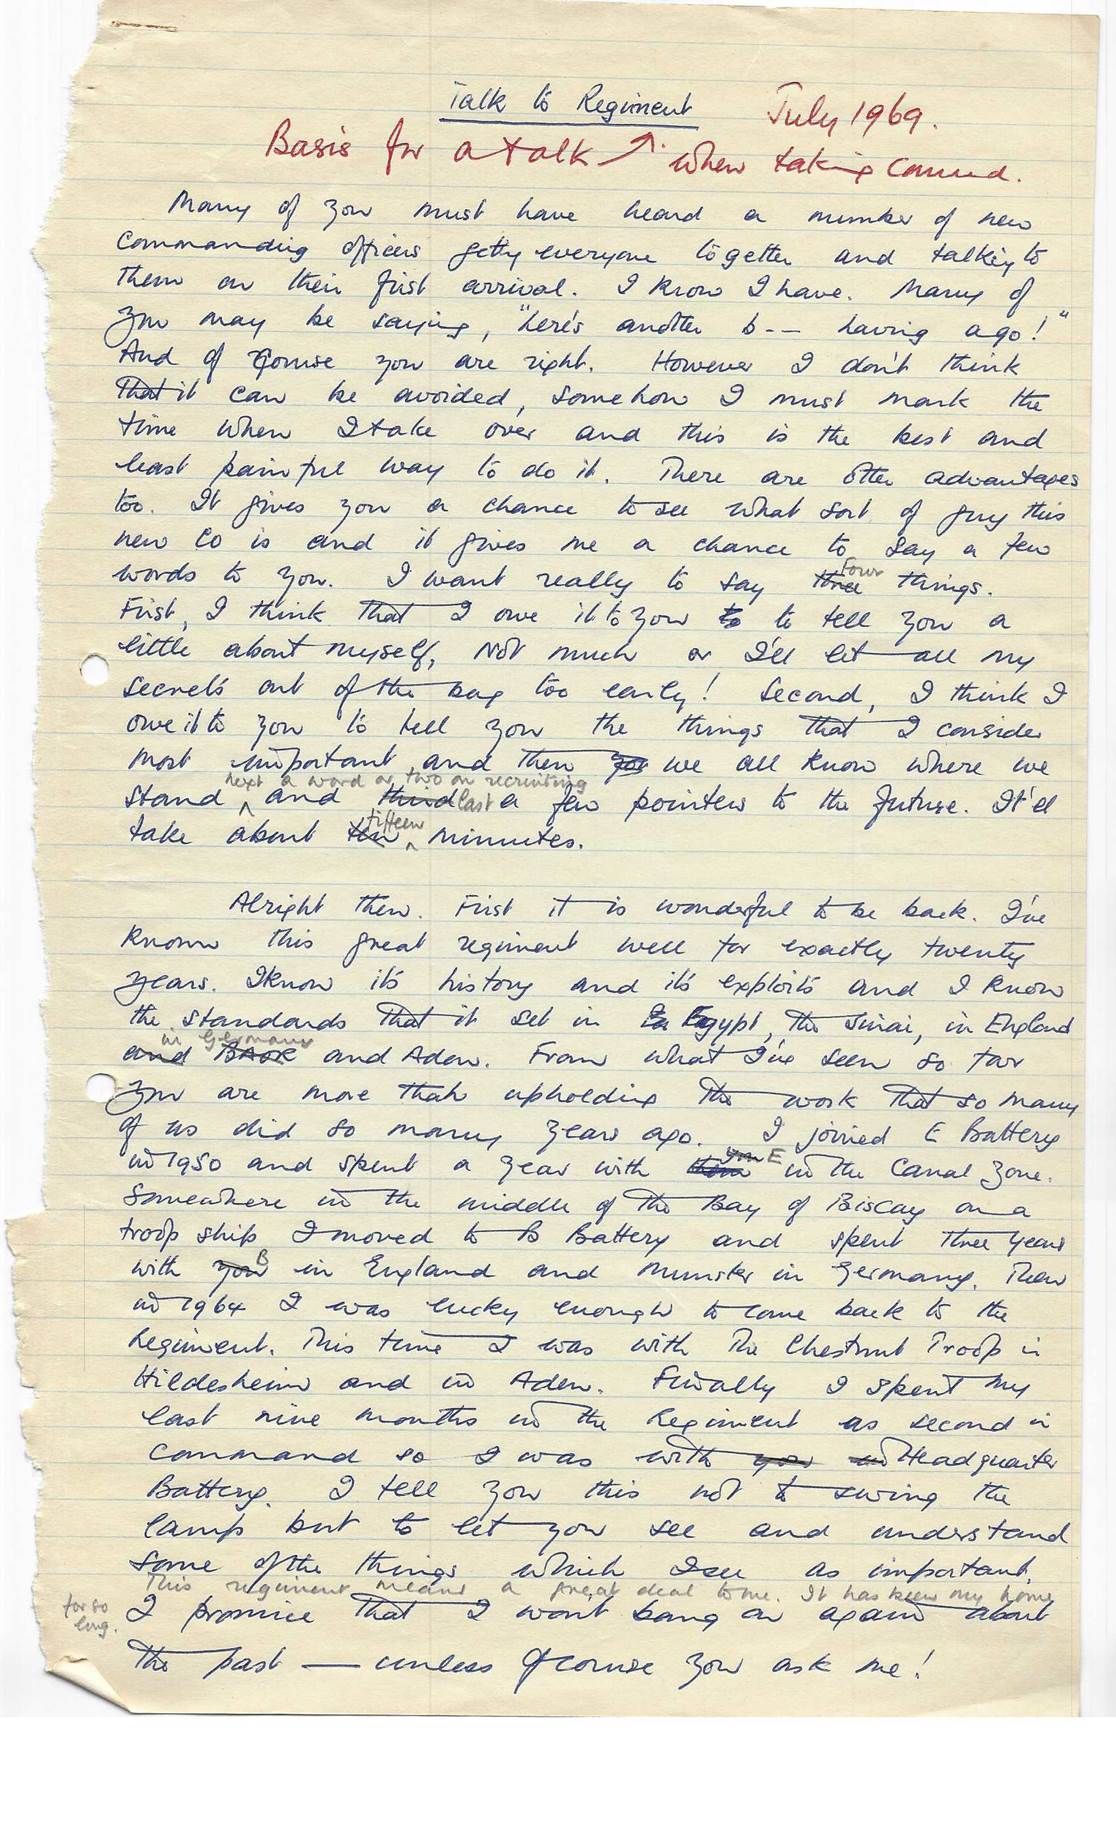 Talk to Regiment July 1969.
Basis for a talk ↗ when taking command.
Many of you must have heard a number of new
commanding officers getting everyone together and talking to
them on their first arrival. I know I have. Many of
you may be saying, "here's another b-- having a go!"
And of course you are right. However I don't think
that it can be avoided, somehow I must mark the
time when I take over and this is the best and
least painful way to do it. There are other advantages
too. It gives you a chance to see what sort of guy this
new CO is and it gives me a chance to say a few
four
words to you. I want really to say three things.
First, I think that I owe it to you to to tell you a
little about myself, not much or I'll let all my
secrets out of the bag too early! Second, I think I
owe it to you to tell you the things that I consider
most important and then you we all know where we
next a word or two on recruiting
stand ^ and third last a few pointers to the future. It'll
fifteen
take about ten ^ minutes.
Alright then. First it is wonderful to be back. I've
known this great regiment well for exactly twenty
years. I know it's history and it's exploits and I know
the standards that it set in Egypt, the Sinai, in England
in Germany
and BAOR and Aden. From what I've seen so far
you are more than upholding the work that so many
of us did so many years ago. I joined E Battery
you E
in 1950 and spent a year with them in the Canal Zone.
Somewhere in the middle of the Bay of Biscay on a
troop ship I moved to B Battery and spent three years
B
with you in England and Munster in Germany. Then
in 1964 I was lucky enough to come back to the
Regiment. This time I was with The Chestnut Troop in
Hildesheim and in Aden. Finally I spent my
last nine months in the Regiment as second in
command so I was with you in Headquarter
Battery. I tell you this not to swing the
lamp but to let you see and understand
some of the things which I see as important.
This regiment means a great deal to me. It has been my home
for so
long.
I promise that I wont bang on again about
the past — unless of course you ask me!